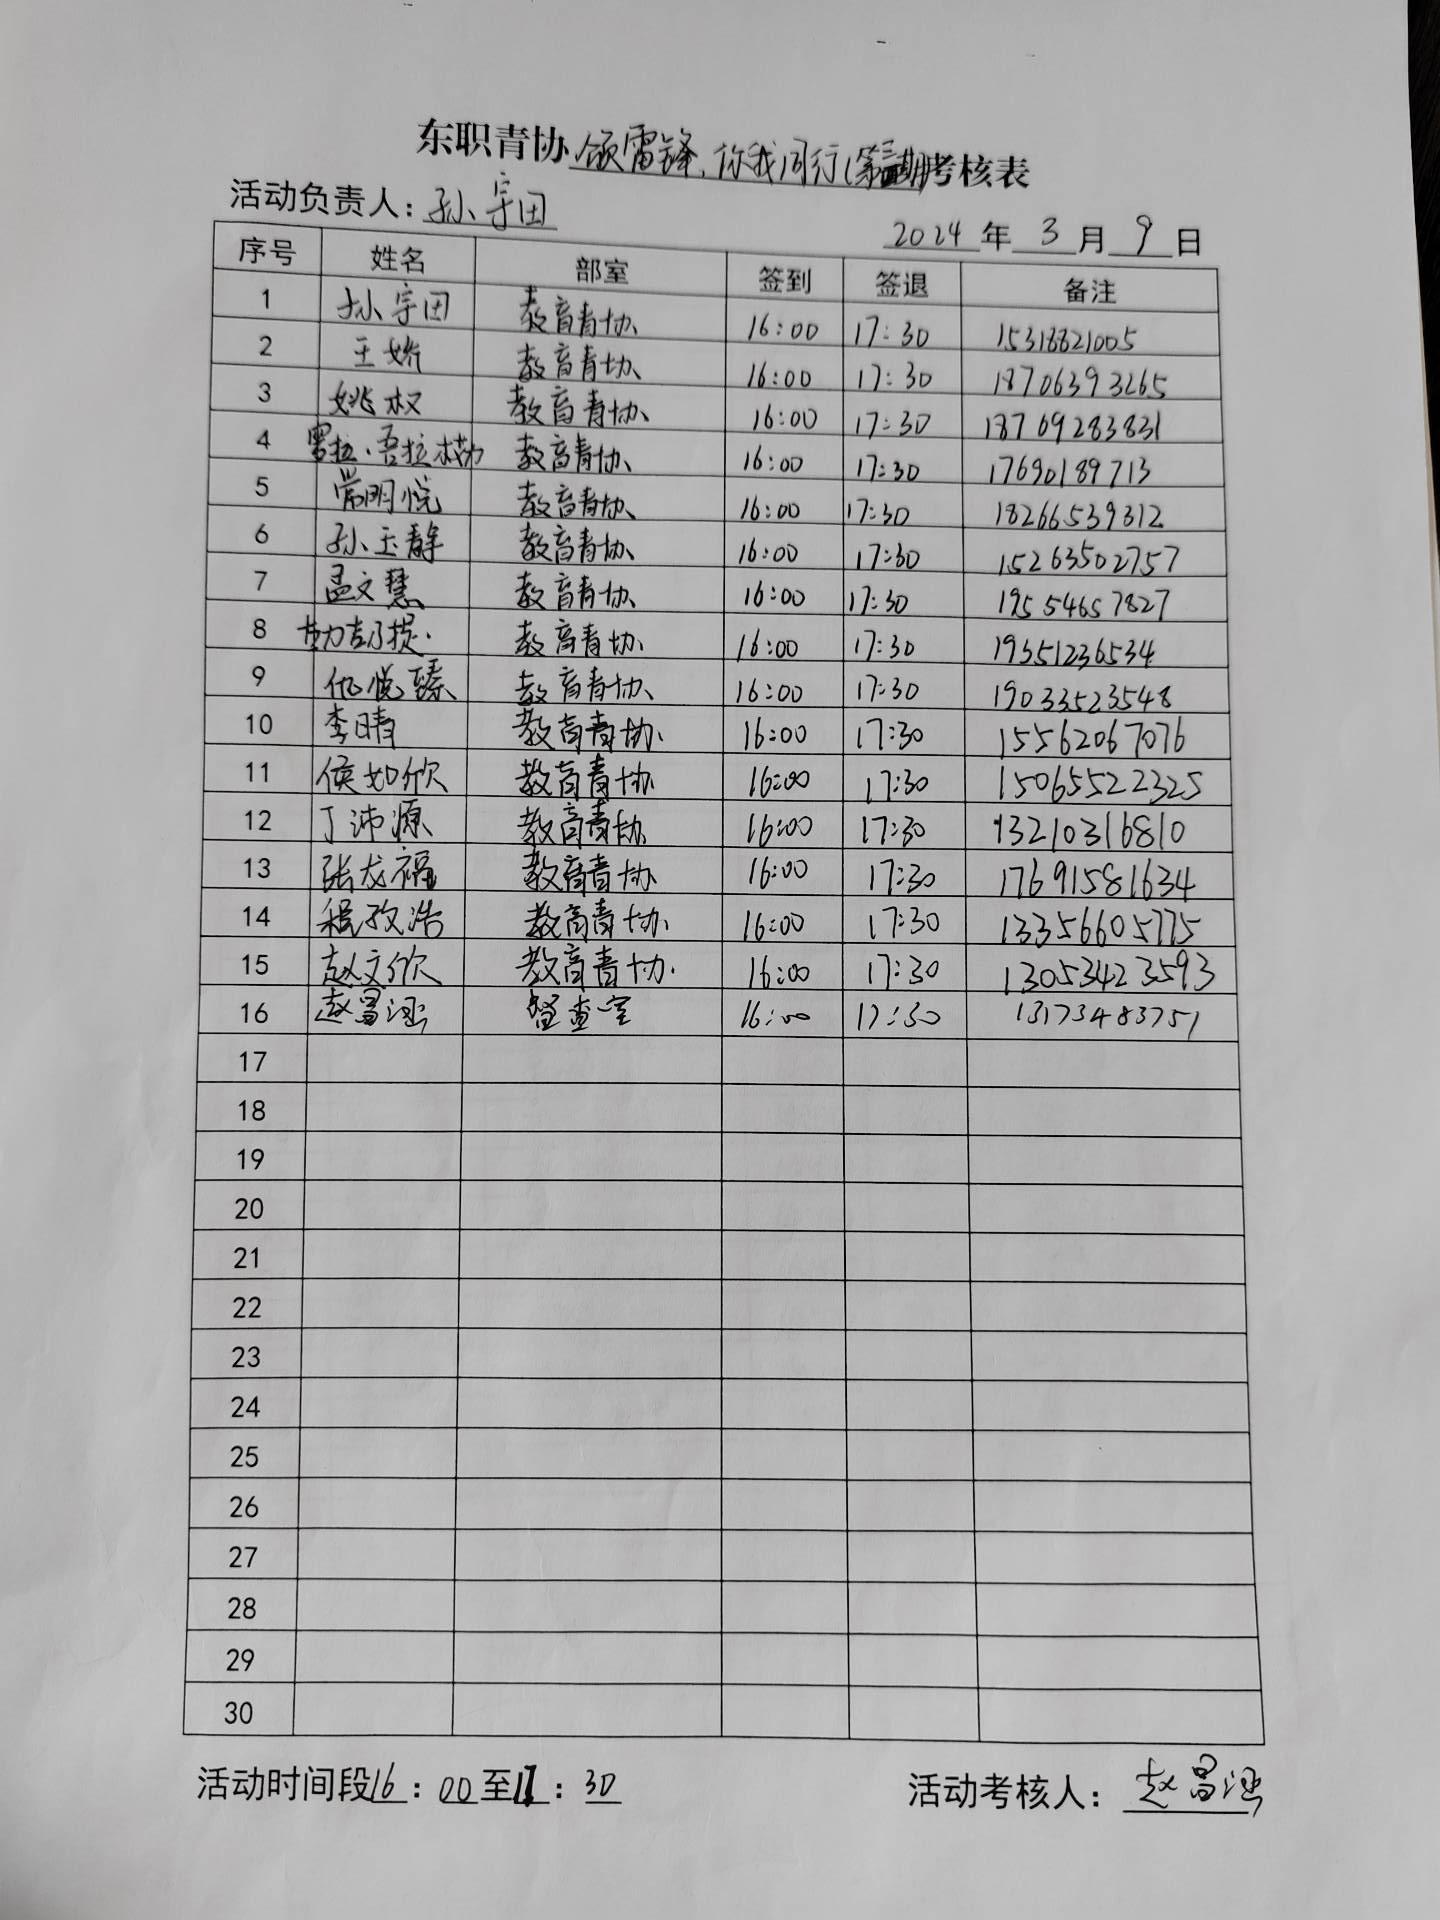 东职青协 颂雷锋、你我同行(第三期)考核表
活动负责人：孙宇团
2024 年 3 月 9 日
序号 姓名 部室 签到 签退 备注
1 孙宇团 教育青协 16:00 17:30 15318821005
2 王娇 教育青协 16:00 17:30 18706393265
3 姚权 教育青协 16:00 17:30 18769283831
4 教育青协 16:00 17:30 17690189713
5 常明悦 教育青协 16:00 17:30 18266539312
6 孙玉静 教育青协 16:00 17:30 15263502757
7 孟文慧 教育青协 16:00 17:30 19554657827
8 教育青协 16:00 17:30 19351236534
9 仇悦臻 教育青协 16:00 17:30 19033523548
10 李晴 教育青协 16:00 17:30 15562067076
11 侯如欣 教育青协 16:00 17:30 15065522325
12 丁沛源 教育青协 16:00 17:30 13210316810
13 张龙福 教育青协 16:00 17:30 17691581634
14 程孜浩 教育青协 16:00 17:30 13356605775
15 赵文欣 教育青协 16:00 17:30 13053423593
16 赵昌涵 督查室 16:00 17:30 13173483751
17
18
19
20
21
22
23
24
25
26
27
28
29
30
活动时间段16：00至17：30 活动考核人：赵昌涵